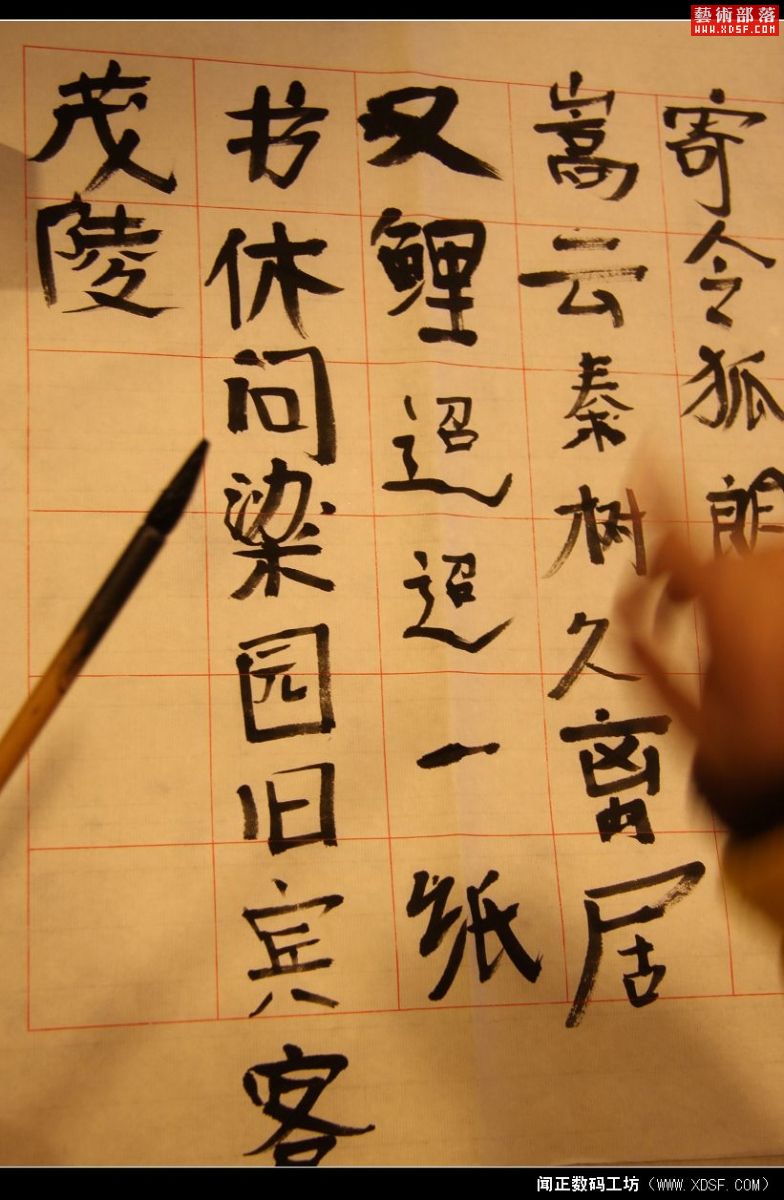 藝術部落
WWW.XDSF.COM
寄令狐郎
嵩云秦树久离居
又鲤迢迢一纸
书休问梁园旧宾客
茂陵
闻正数码工坊（WWW.XDSF.COM）